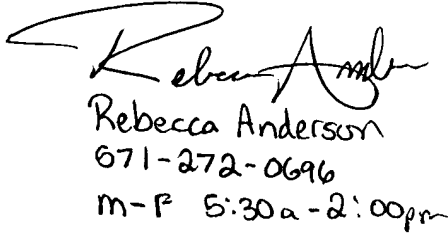 Rebecca Anderson
Rebecca Anderson
671-272-0696
m-F 5:30a-2:00pm